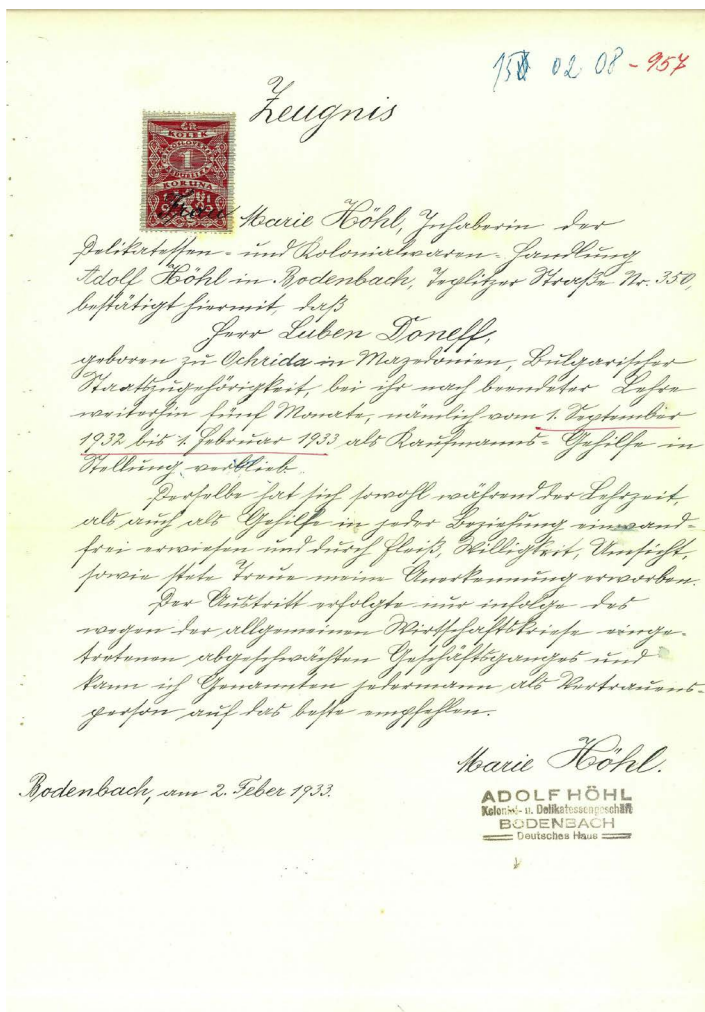 02 08 - 957
Zeugnis
KOLEK
1
KORUNA
Frau Marie Höhl, Inhaberin der
Delikatessen- und Kolonialwaren-Handlung
Adolf Höhl in Bodenbach, Teplitzer Straße Nr. 350,
bestätigt hiermit, daß
Herr Luben Doneff,
geboren zu Ochrida in Mazedonien, Bulgarischer
Staatszugehörigkeit, bei ihr nach beendeter Lehre
weiterhin fünf Monate, nämlich vom 1. September
1932 bis 1. Februar 1933 als Kaufmanns-Gehilfe in
Stellung verblieb.
Derselbe hat sich sowohl während der Lehrzeit,
als auch als Gehilfe in jeder Beziehung einwand-
frei erwiesen und durch Fleiß, Willigkeit, Umsicht,
sowie stete Treue meine Anerkennung erworben.
Der Austritt erfolgte nur infolge des
wegen der allgemeinen Wirtschaftskriese einge-
tretenen abgeschwächten Geschäftsganges und
kann ich Genannten jedermann als Vertrauens-
person auf das beste empfehlen.
Marie Höhl.
Bodenbach, am 2. Feber 1933.
ADOLF HÖHL
Kolonial- u. Delikatessengeschäft
BODENBACH
Deutsches Haus